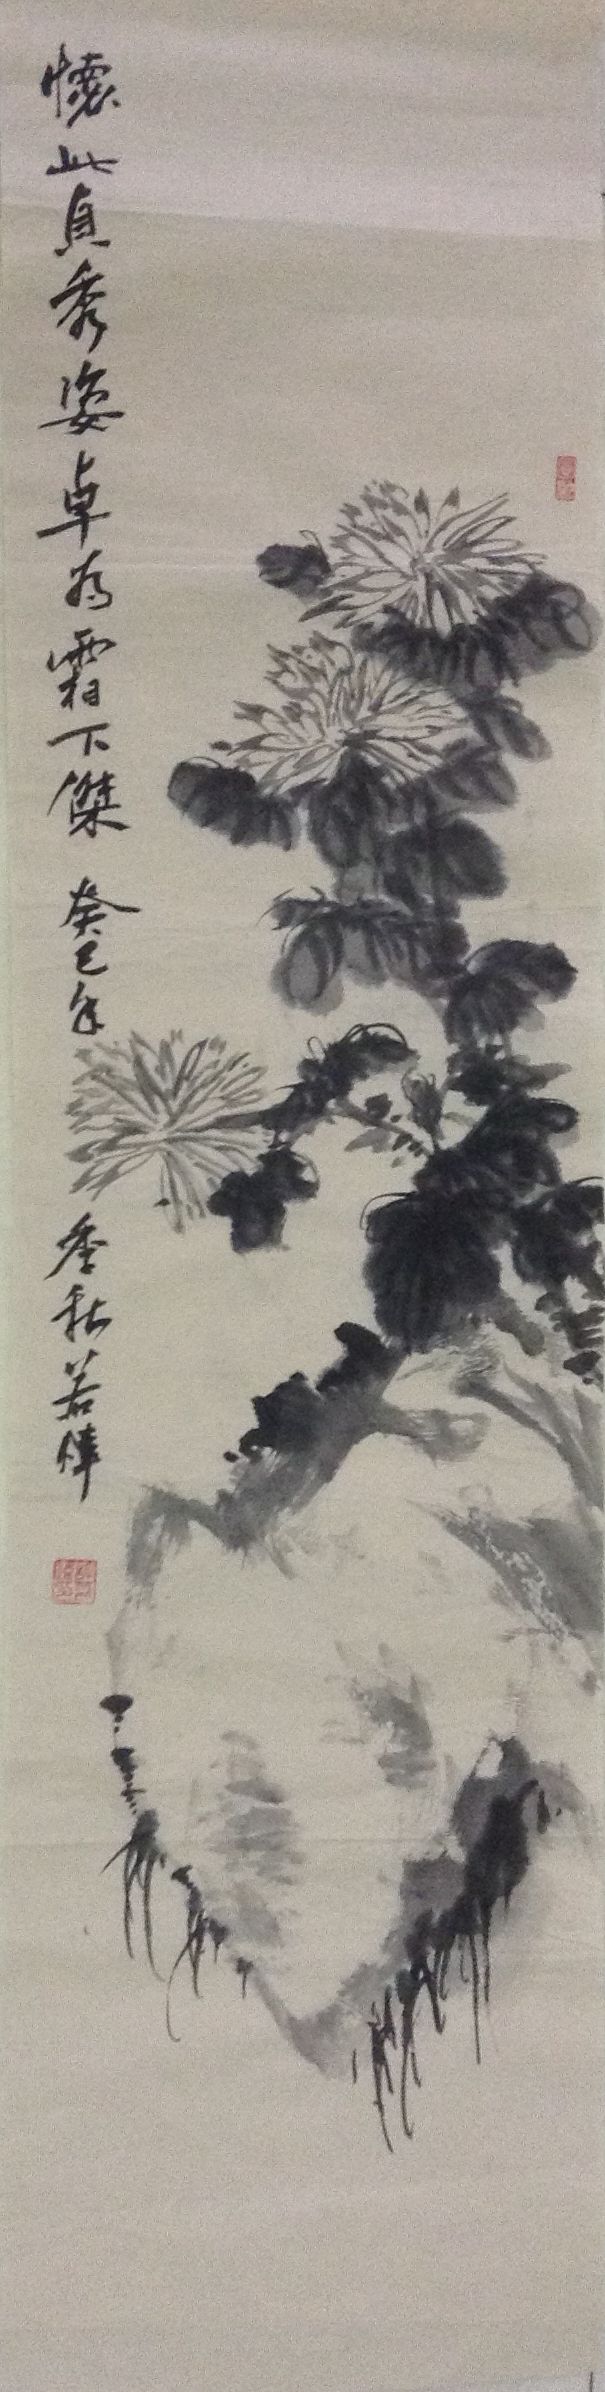 懷此貞秀姿卓為霜下傑
癸巳年
季秋若煒